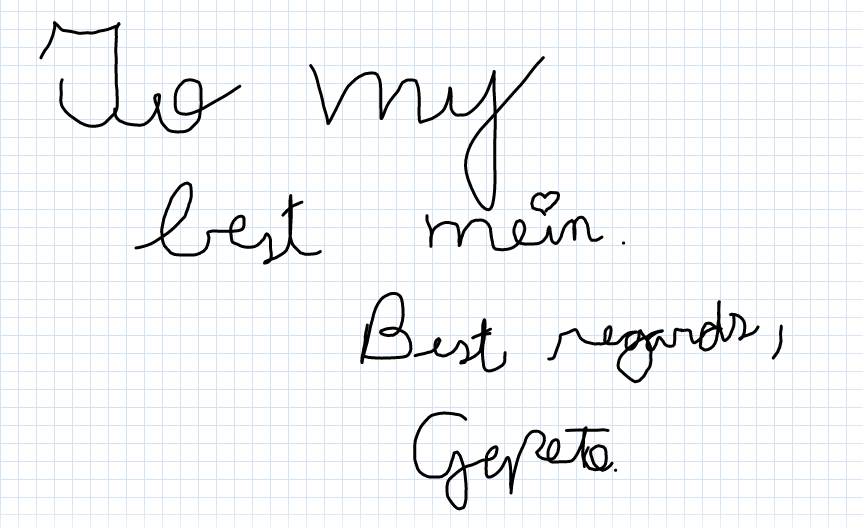 To my
best mein.
Best regards,
Gepeto.